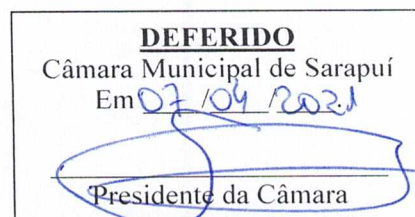 DEFERIDO
Câmara Municipal de Sarapuí
Em 07 /04 /2021
Presidente da Câmara